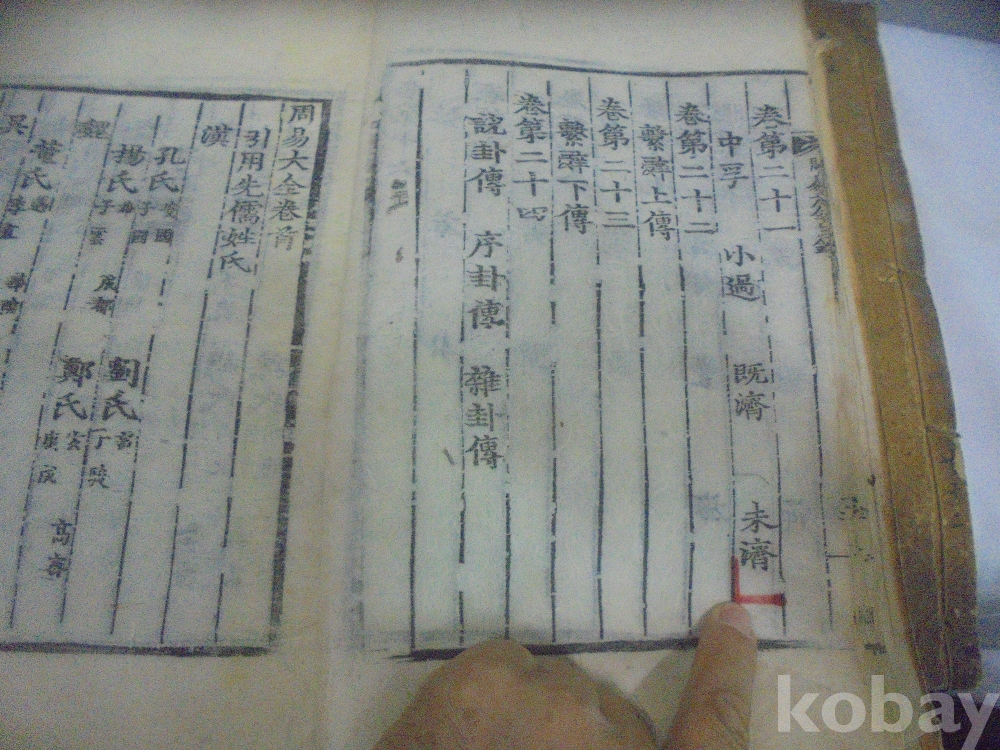 卷第二十一
中孚 小過 旣濟 未濟
卷第二十二
繫辭上傳
卷第二十三
繫辭下傳
卷第二十四
說卦傳 序卦傳 雜卦傳
周易大全卷首
引用先儒姓氏
漢
孔氏安國 子國
揚氏雄 子雲 成都 劉氏
鄭氏玄 康成 高密
董氏
kobay